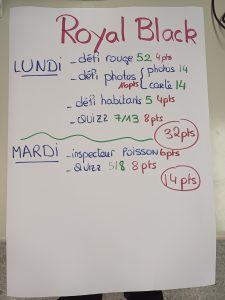 Royal Black
LUNDI - défi rouge 52 4pts
- défi photos { photos 14
16pts carte 14
- défi habitants 5 4pts
- QUIZZ 7/13 8pts
32pts
MARDI - inspecteur POISSON 6pts
- QUIZZ 5/8 8pts
14pts